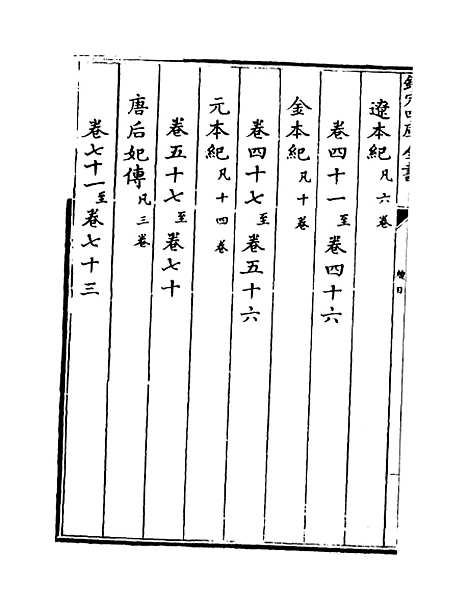 欽定四庫全書
遼本紀凡六卷
卷四十一至卷四十六
金本紀凡十卷
卷四十七至卷五十六
元本紀凡十四卷
卷五十七至卷七十
唐后妃傳凡三卷
卷七十一至卷七十三